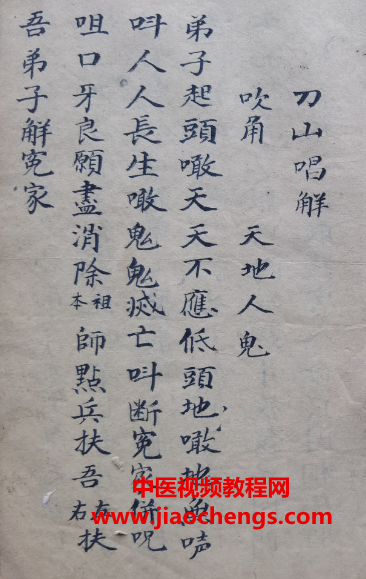 刀山唱解
吹角　天地人鬼
弟子起頭噉天天不應低頭地噉地無声
呌人人長生噉鬼鬼滅亡呌断冤家併呪
咀口牙良願盡消除本祖師點兵扶吾左右扶
吾弟子解冤家
中医视频教程网
www.jiaochengs.com